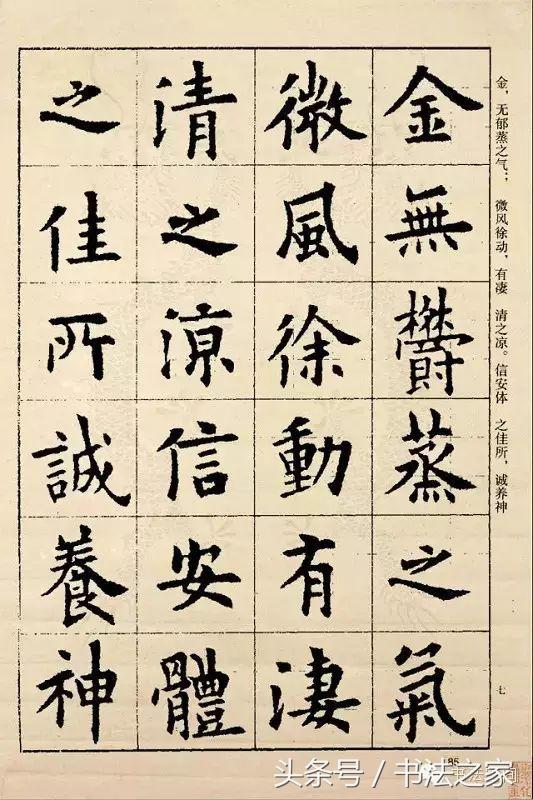 金無鬱蒸之氣
微風徐動有淒
清之涼信安體
之佳所誠養神
金，无郁蒸之气；微风徐动，有凄清之凉。信安体之佳所，诚养神
七
85
头条号／书法之家